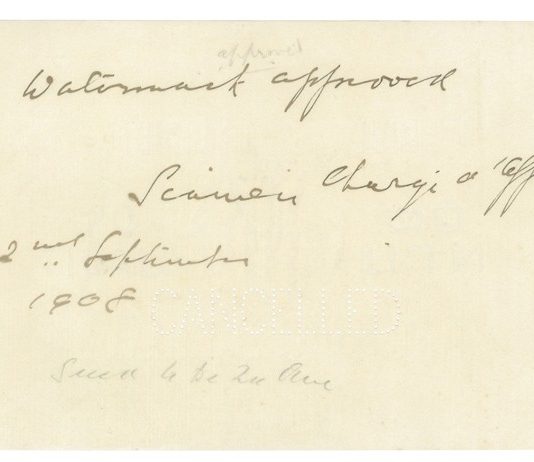 approved
Watermark approved
Siamese Chargé d'Aff
2nd September
1908
CANCELLED
Send to De La Rue